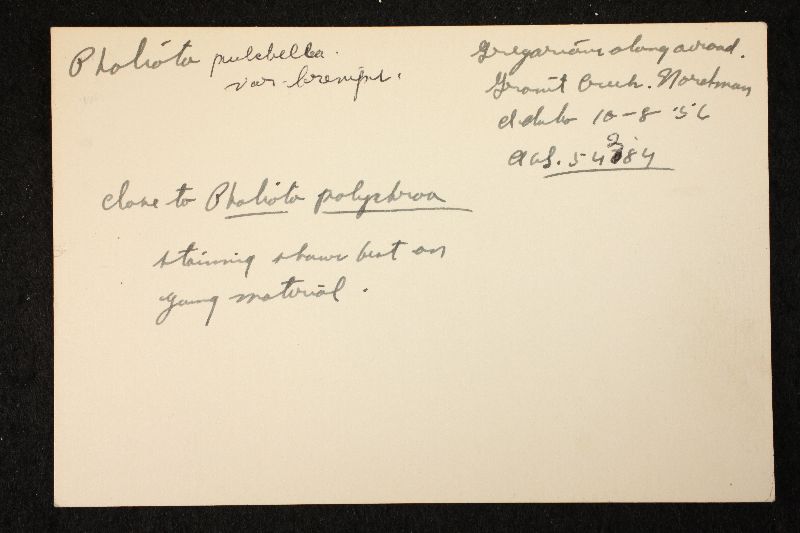 Pholiota pulchella.
var. brevipes.
Gregarious along a road.
Granit Creek. Nordman
Idaho 10-8-56
AHS. 54284
close to Pholiota polychroa
staining shows best on
young material.